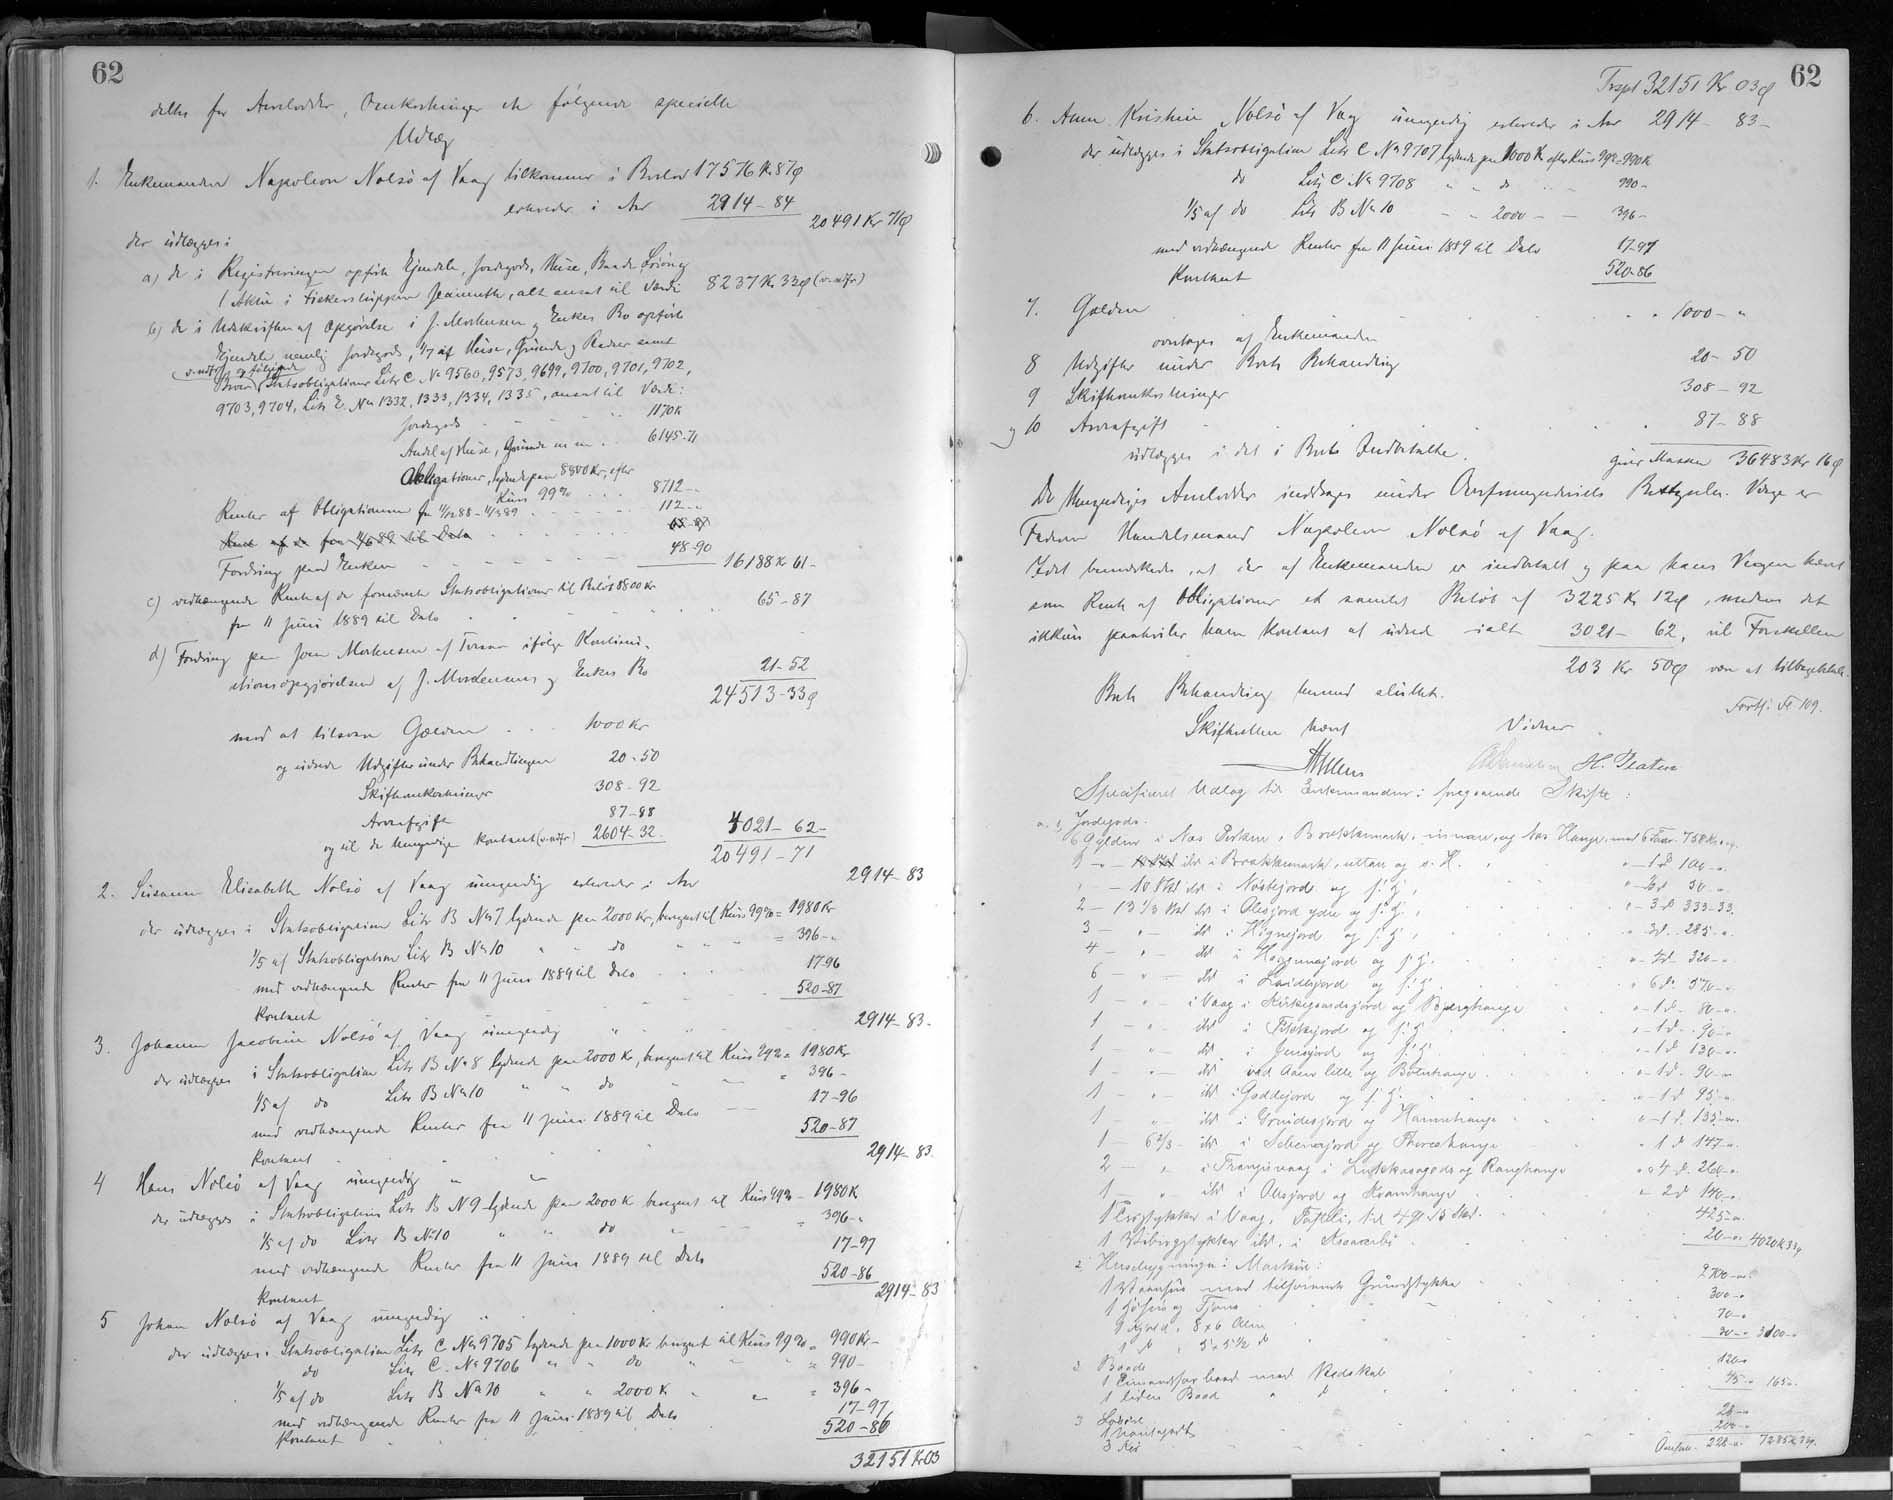 62
deles for Arvelodder, Omkostninger etc følgende specielle
Udlæg
1. Enkemanden Napoleon Nolsø af Vaag tilkommer i Boslod 17576 Kr 87 ø
erhverder i Arv 2914-84
20491 Kr 71 ø
der udlægges:
a) de i Registreringen opførte Ejendele, Jordegods, Huse, Baade, Løsøre og
1 Aktie i Fiskerslupperne Jeannette, alt ansat til Værdi 8237 Kr 33 ø (v. ndfr)
b) de i Udskriften af Opgjørelse i J. Mortensen og Enkes Bo opførte
Ejendele nemlig Jordegods, 1/7 af Huse, Grunde og Redner samt
v. ndfr og følgende
Statsobligationer Litr C No 9560, 9573, 9699, 9700, 9701, 9702,
9703, 9704, Litr E. No 1332, 1333, 1334, 1335, ansat til Værdi:
Jordegods 1170 K
Andel af Huse, Grunde m m . . 6145-71
Obligationer, lydende paa 8800 Kr, efter
Kurs 99% . . . 8712-"
Renter af Obligationerne fra 11/12 88 - 11/6 89 . . . 112-"
Rente af do fra 11/6 89 til Dato 65-87
Fordring paa Enken 48-90
16188 Kr 61-
c) vedhængende Rente af de fornævnte Statsobligationer til Beløb 8800 Kr
fra 11 Juni 1889 til Dato 65-87
d) Fordring paa Joen Mortensen af Tveraa ifølge Kontinu-
ationsopgjørelsen af J. Mortensens og Enkes Bo 21-52
24513-33 ø
mod at tilsvare Gælden . . . 1000 Kr
og udrede Udgifter under Behandlingen 20-50
Skifteomkostninger 308-92
Arveafgift 87-88
og til de Umyndige kontant (v. ndfr) 2604-32
4021-62-
20491-71
2. Susanne Elisabeth Nolsø af Vaag umyndig erhverder i Arv 2914-83
der udlægges i Statsobligation Litr B No 7 lydende paa 2000 Kr, beregnet til Kurs 99% = 1980 Kr
1/5 af Statsobligation Litr B No 10 " " do " " = 396-"
med vedhængende Renter fra 11 Juni 1889 til Dato 17-96
Kontant 520-87
3. Johanne Jacobine Nolsø af Vaag umyndig " " 2914-83-
der udlægges i Statsobligation Litr B No 8 lydende paa 2000 Kr, beregnet til Kurs 99% = 1980 Kr
1/5 af do Litr B No 10 " " do = 396-
med vedhængende Renter fra 11 Juni 1889 til Dato 17-96
Kontant 520-87
4 Hans Nolsø af Vaag umyndig " " 2914-83
der udlægges i Statsobligation Litr B No 9 lydende paa 2000 K beregnet til Kurs 99% - 1980 K
1/5 af do Litr B No 10 " " do = 396-"
med vedhængende Renter fra 11 Juni 1889 til Dato 17-97
Kontant 520-86
5 Johan Nolsø af Vaag umyndig " " 2914-83
der udlægges i Statsobligation Litr C No 9705 lydende paa 1000 Kr beregnet til Kurs 99% = 990 Kr-
do Litr C. No 9706 " " do " " = 990-
1/5 af do Litr B No 10 " " 2000 K " = 396-
med vedhængende Renter fra 11 Juni 1889 til Dato 17-97
Kontant 520-86
32151 Kr 03
62
Trspt 32151 Kr 03 ø
6. Anne Kristine Nolsø af Vaag umyndig erhverder i Arv 2914-83-
der udlægges i Statsobligation Litr C No 9707 lydende paa 1000 K efter Kurs 99% = 990 K
do Litr C No 9708 " " do 990-
1/5 af do Litr B No 10 - - 2000 - - 396-
med vedhængende Renter fra 11 Juni 1889 til Dato 17-97
Kontant 520-86
7. Gælden . . . 1000-"
overtages af Enkemanden
8 Udgifter under Boets Behandling 20-50
9 Skifteomkostninger 308-92
og 10 Arveafgift 87-88
udlægges i det i Boet Indbetalte.
giver Massen 36483 Kr 16 ø
De Umyndiges Arvelodder inddrages under Overformynderiets Bestyrelse. Værge er
Faderen Handelsmand Napoleon Nolsø af Vaag.
Idet bemærkedes, at der af Enkemanden er indbetalt og paa hans Vegne hævet
som Rente af Obligationer et samlet Beløb af 3225 Kr 12 ø, medens det
ikkun paahviler ham kontant at udrede ialt 3021-62, vil Forskellen
203 Kr 50 ø være at tilbagebetale.
Boets Behandling hermed sluttet.
Forts: Fl. 109.
Skifteretten hævet Vidner
H. Peatersen
Specificeret Udlæg til Enkemanden i foregaaende Skifte:
a. 1, Jordegods.
6 Gylden i Næs 758 Kr
1 d 100-"
10 Skl do i Nøstejord og f. h. 50-"
2 - 13 1/3 Skl do i Olesjord ydre og f. h. - 3 d 333-33
3 - " - do i Høgnejord og f. h. - 3 d. 285-"
4 - " - do i og f. h. - 4 d 320-"
6 - " - do i og f. h. " 6 d. 570-"
1 - " - i Vaag i Kirkegaardsjord og Bjerghauge - 1 d - 80-"
1 - " - do i og f. h. - 1 d - 90-"
1 - " - do i Jensjord og f. h. - 1 d 130-"
1 - " - do ved Aaen lille og - 1 d. 90-"
1 - " - do i Goddejord og f. h. - 1 d 95-"
1 - " - do i og Hamrehauge - 1 d. 135-"
1 - 6 2/3 - do i og - 1 d 147-"
2 - " - i og 4 d. 260-"
1 - " - do i Olesjord og - 2 d 140-"
i Vaag, 425-"
do i 20-" 4020 K 33 ø
2, Husebygninger: Markun:
1 Vaanhus med tilhørende Grundstykke 2700-"
1 og 300-"
8 x 6 Alen 70-"
1 do, 5 x 5 1/2 do 30-" 3100-"
3. Baade
1 med Redskab 120-"
1 liden Baad " d 45-" 165-"
3 Løsøre
1 28-"
3 Køer 200-"
228-" 7285 K 33 ø.